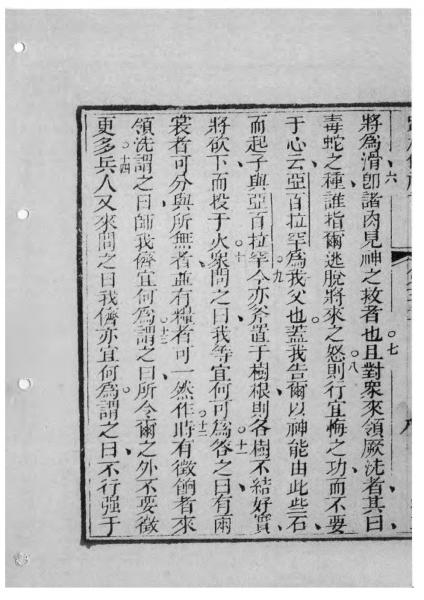 六將為滑卽諸肉見神之救者也七且對眾來領厥洗者其曰
毒蛇之種誰指爾逃脫將來之怒八則行宜悔之功而不要
于心云亞百拉罕為我父也蓋我告爾以神能由此些石
而起子與亞百拉罕九今亦斧置于樹根則各樹不結好實
將欲下而投于火十眾問之曰我等宜何可為十一答之曰有兩
裳者可分與所無者並有糧者可一然十二作時有徵餉者來
領洗謂之曰師我儕宜何為十三謂之曰所令爾之外不要徵
更多十四兵人又來問之曰我儕亦宜何為謂之曰不行强于